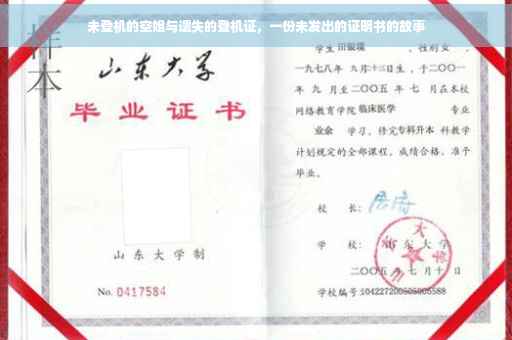 未登机的空姐与遗失的登机证，一份未发出的证明书的故事
样本
山东大学
毕业证书
山东大学制
No. 0417584
学生 田银瑞 ，性别 女 ，
一九七八年 九月十三日生，于二〇〇一
年 九 月至二〇〇五 年 七 月在本校
网络教育学院 临床医学 专业
业余 学习，修完专科升本科教学
计划规定的全部课程，成绩合格，准予
毕业。
校 长：
学 校：山东大学
二〇〇五 年 七 月 十 日
学校编号：104227200505005588